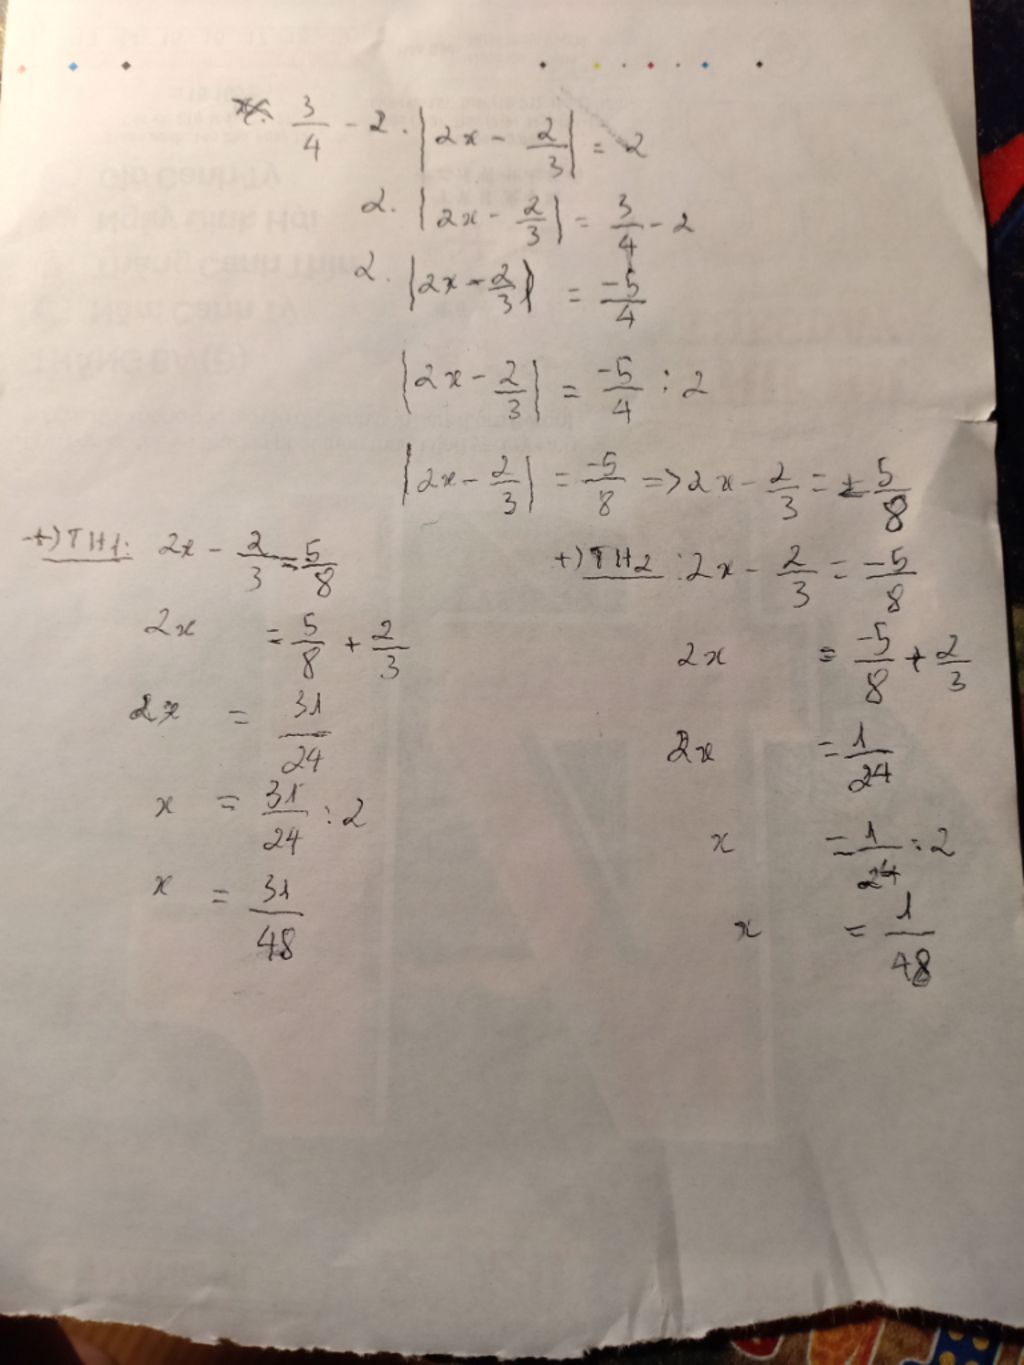 3/4 - 2 · |2x - 2/3| = 2
2. |2x - 2/3| = 3/4 - 2
2. |2x - 2/3| = -5/4
|2x - 2/3| = -5/4 : 2
|2x - 2/3| = -5/8 => 2x - 2/3 = ± 5/8
+) TH1: 2x - 2/3 = 5/8
2x = 5/8 + 2/3
2x = 31/24
x = 31/24 : 2
x = 31/48
+) TH2: 2x - 2/3 = -5/8
2x = -5/8 + 2/3
2x = 1/24
x = 1/24 : 2
x = 1/48